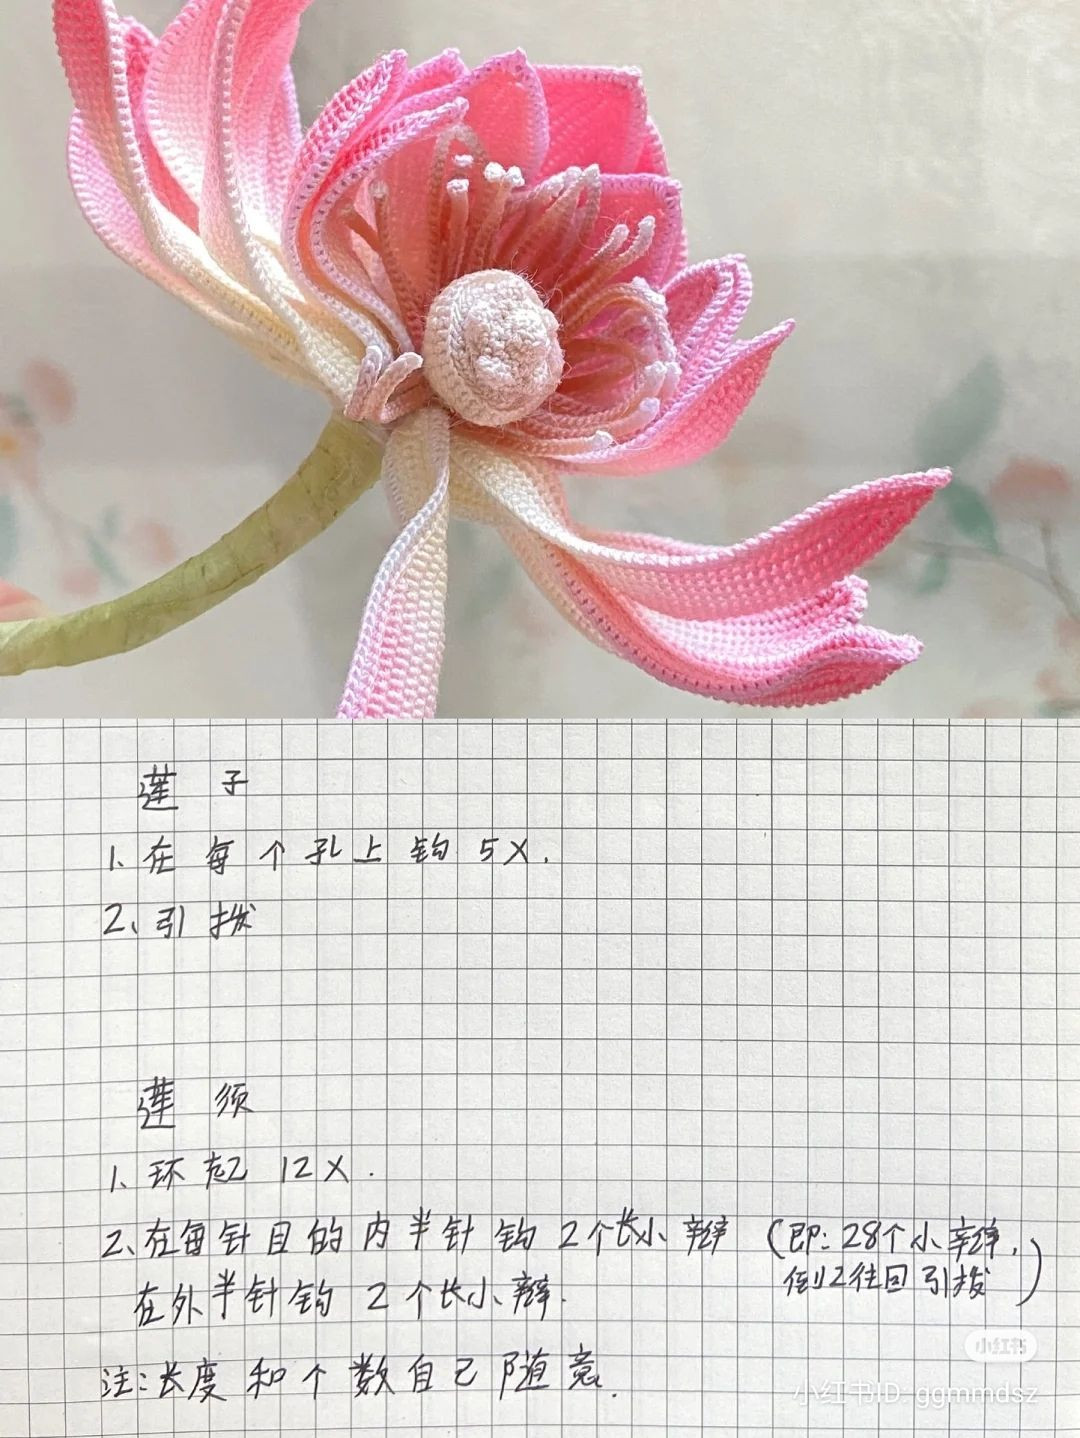 莲子
1、在每个孔上钩5X.
2、引拨
莲须
1、环起12X.
2、在每针目的内半针钩2个长小瓣（即:28个小辫,
倒2往回引拨）
在外半针钩2个长小辫.
注:长度和个数自己随意.
小红书
小红书ID: ggmmdsz